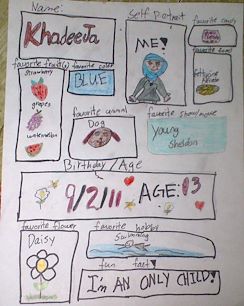 Name:
Khadeeja
Self Portrait
ME!
favorite candy
favorite food
fettuccine
Alfredo
favorite fruit(s)
strawberry
grapes
watermelon
favorite color
BLUE
favorite animal
Dog
favorite show/movie
Young
Sheldon
Birthday/Age
9/2/11
AGE:13
favorite flower
Daisy
favorite hobby
Swimming
fun fact!
I'm AN ONLY CHILD!